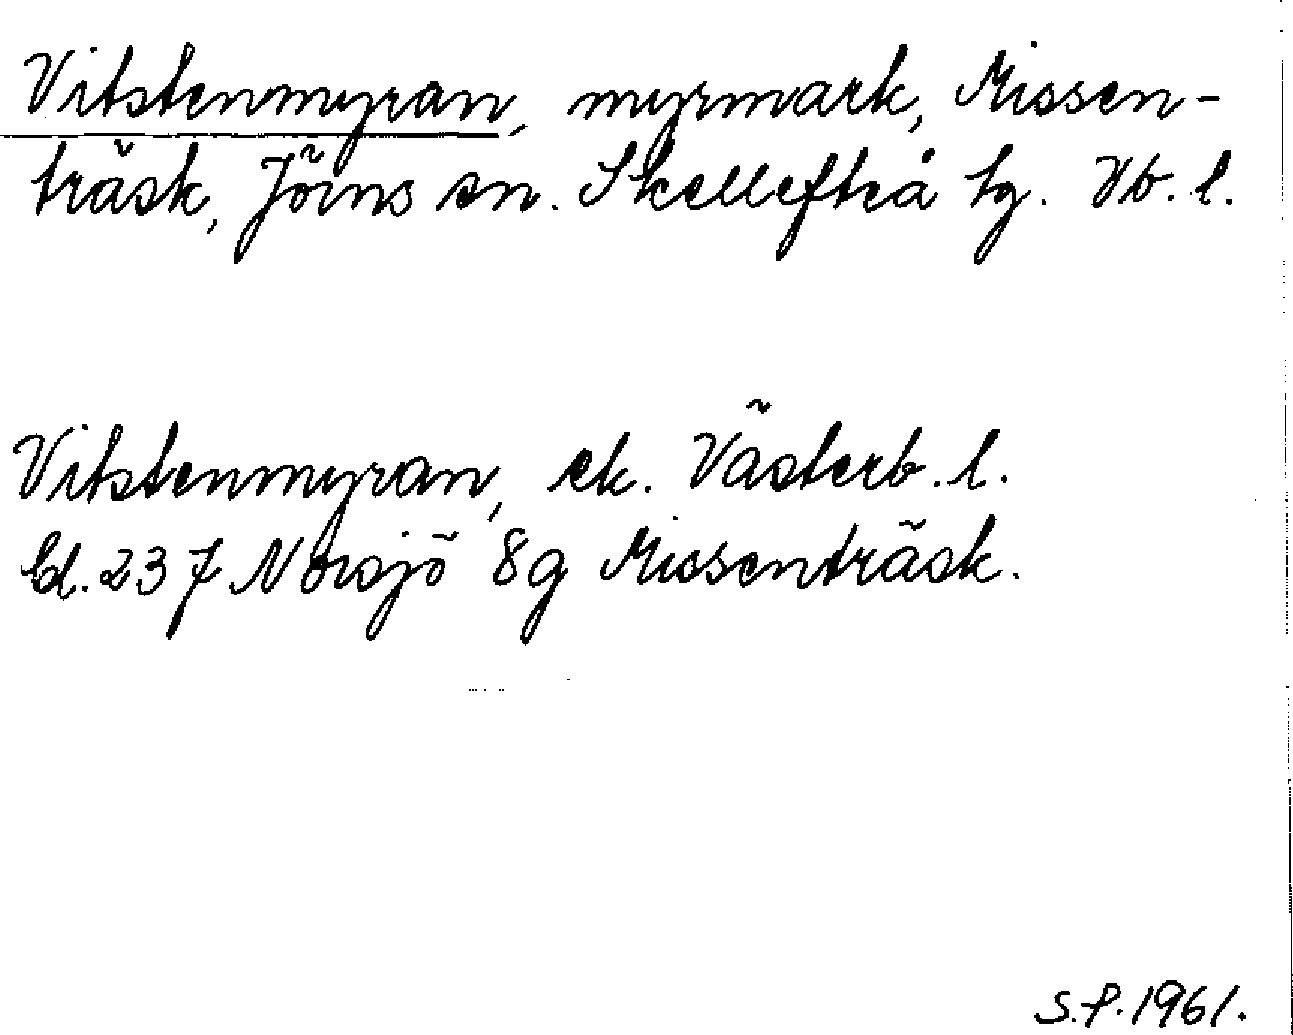 Vitstenmyran, myrmark, Missen-
träsk, Jörns sn. Skellefteå tg. Vb. l.
Vitstenmyran, ek. Västerb. l.
bd. 237 Norsjö 8g Missenträsk.
S.P. 1961.